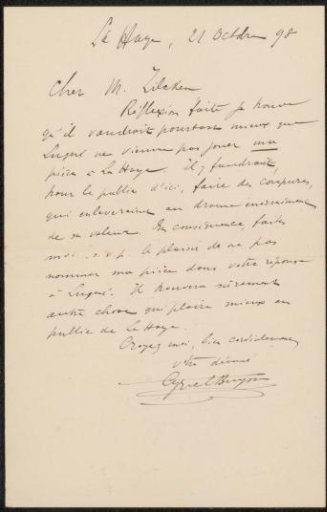 La Haye, 21 Octobre 98
Cher M. Zilcken
Réflexion faite je trouve
qu'il vaudrait pourtant mieux que
Lugné ne vienne pas jouer ma
pièce à La Haye. Il y faudrait,
pour le public d'ici, faire des coupures,
qui enlèveraient au drame énormément
de sa valeur. En conséquence, faites
moi s.v.p. le plaisir de ne pas
nommer ma pièce dans votre réponse
à Lugné. Il trouvera sûrement
autre chose qui plaira mieux au
public de La Haye.
Croyez moi, bien cordialement
votre dévoué
Cyriel Buysse